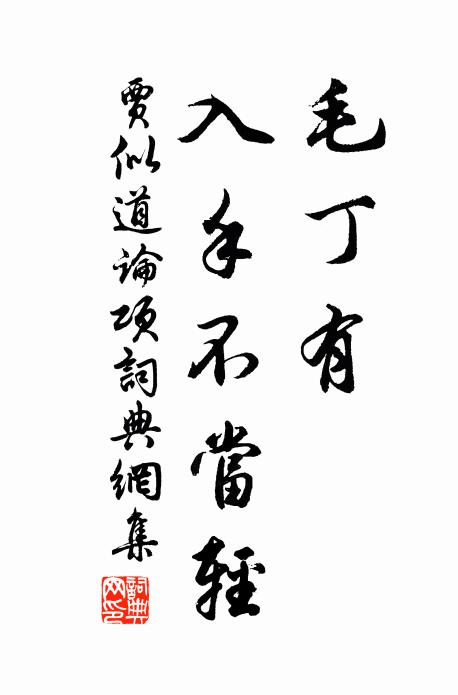 毛丁有
入手不當輕
賈似道論項詞典網集
詞典
网印